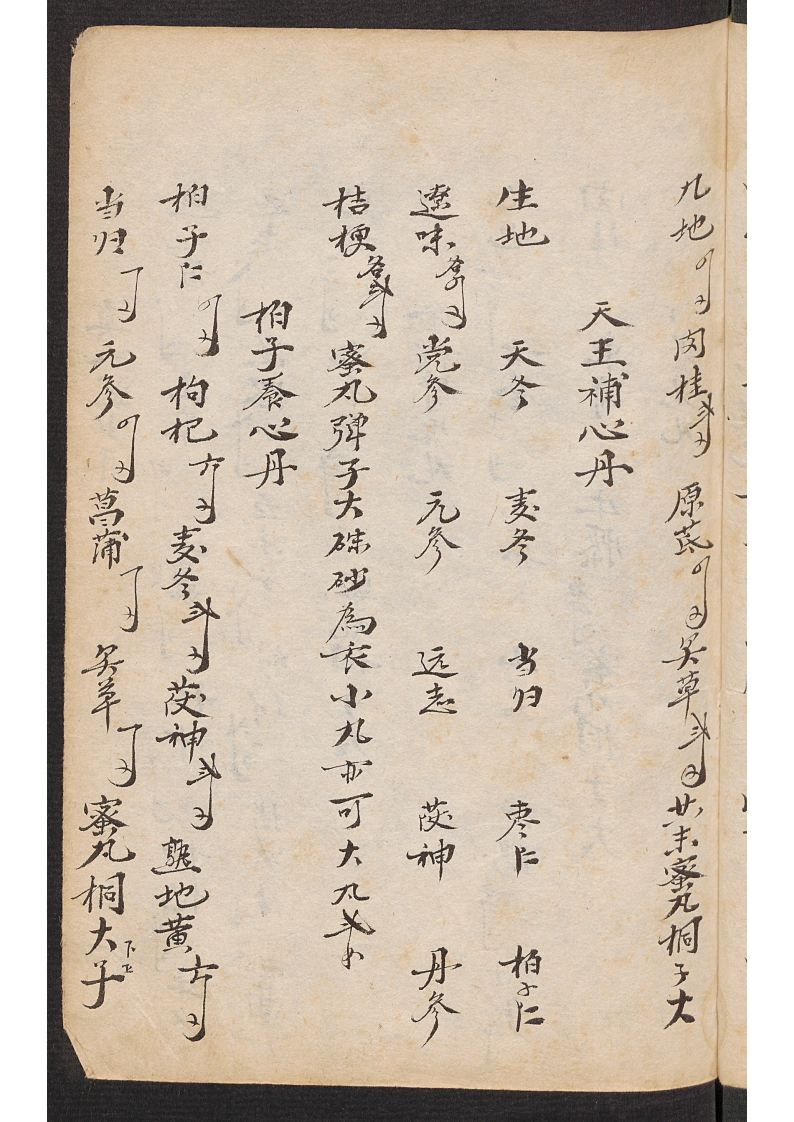 九地 肉桂 原芪 炙草 共末蜜丸桐子大
天王補心丹
生地 天冬 麦冬 当归 枣仁 柏子仁
遼味 党参 元参 远志 茯神 丹参
桔梗 蜜丸弹子大硃砂為衣小丸亦可大丸
柏子養心丹
柏子仁 枸杞 麦冬 茯神 熟地黄
当归 元参 菖蒲 炙草 蜜丸桐大子